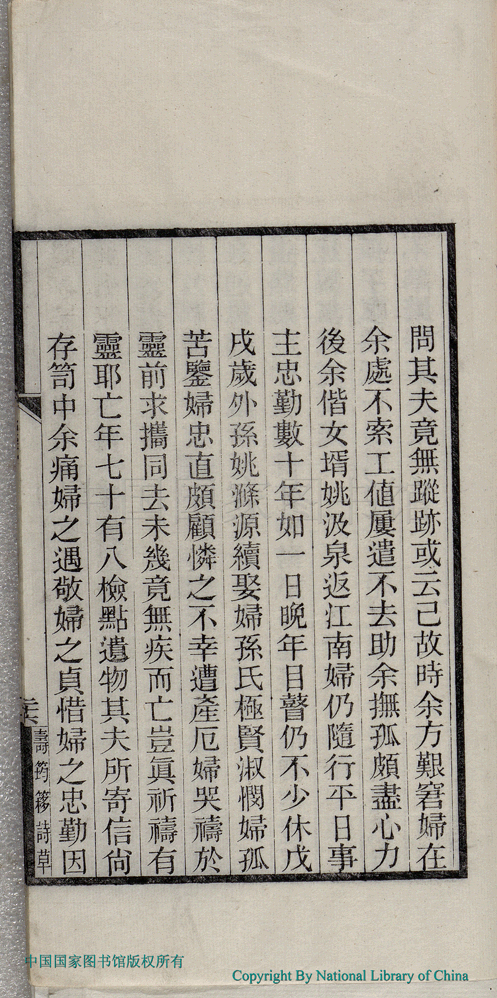 問其夫竟無蹤跡或云已故時余方艱窘婦在
余處不索工値屢遣不去助余撫孤頗盡心力
後余偕女壻姚汲泉返江南婦仍隨行平日事
主忠勤數十年如一日晚年目瞽仍不少休戊
戌歲外孫姚滌源續娶婦孫氏極賢淑憫婦孤
苦鑒婦忠直頗顧憐之不幸遭產厄婦哭禱於
靈前求攜同去未幾竟無疾而亡豈眞祈禱有
靈耶亡年七十有八檢點遺物其夫所寄信尙
存笥中余痛婦之遇敬婦之貞惜婦之忠勤因
壽筠簃詩草
中国国家图书馆版权所有
Copyright By National Library of China